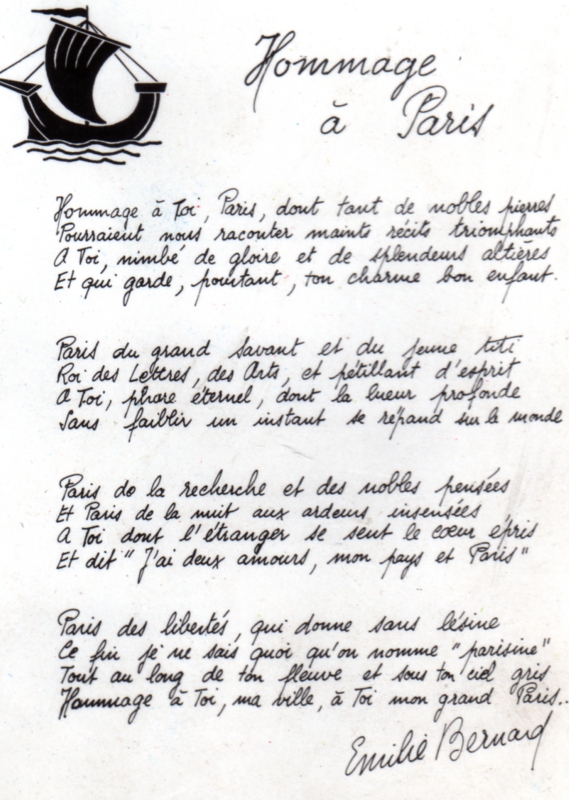 Hommage
à Paris
Hommage à Toi, Paris, dont tant de nobles pierres
Pourraient nous raconter maints récits triomphants
A Toi, nimbé de gloire et de splendeurs altières
Et qui garde, pourtant, ton charme bon enfant.
Paris du grand savant et du jeune titi
Roi des Lettres, des Arts, et pétillant d'esprit
A Toi, phare éternel, dont la lueur profonde
Sans faiblir un instant se répand sur le monde
Paris de la recherche et des nobles pensées
Et Paris de la nuit aux ardeurs insensées
A Toi dont l'étranger se sent le cœur épris
Et dit "J'ai deux amours, mon pays et Paris"
Paris des libertés, qui donne sans lésine
Ce fin je ne sais quoi qu'on nomme "parisine"
Tout au long de ton fleuve et sous ton ciel gris
Hommage à Toi, ma ville, à Toi mon grand Paris..
Emilie Bernard